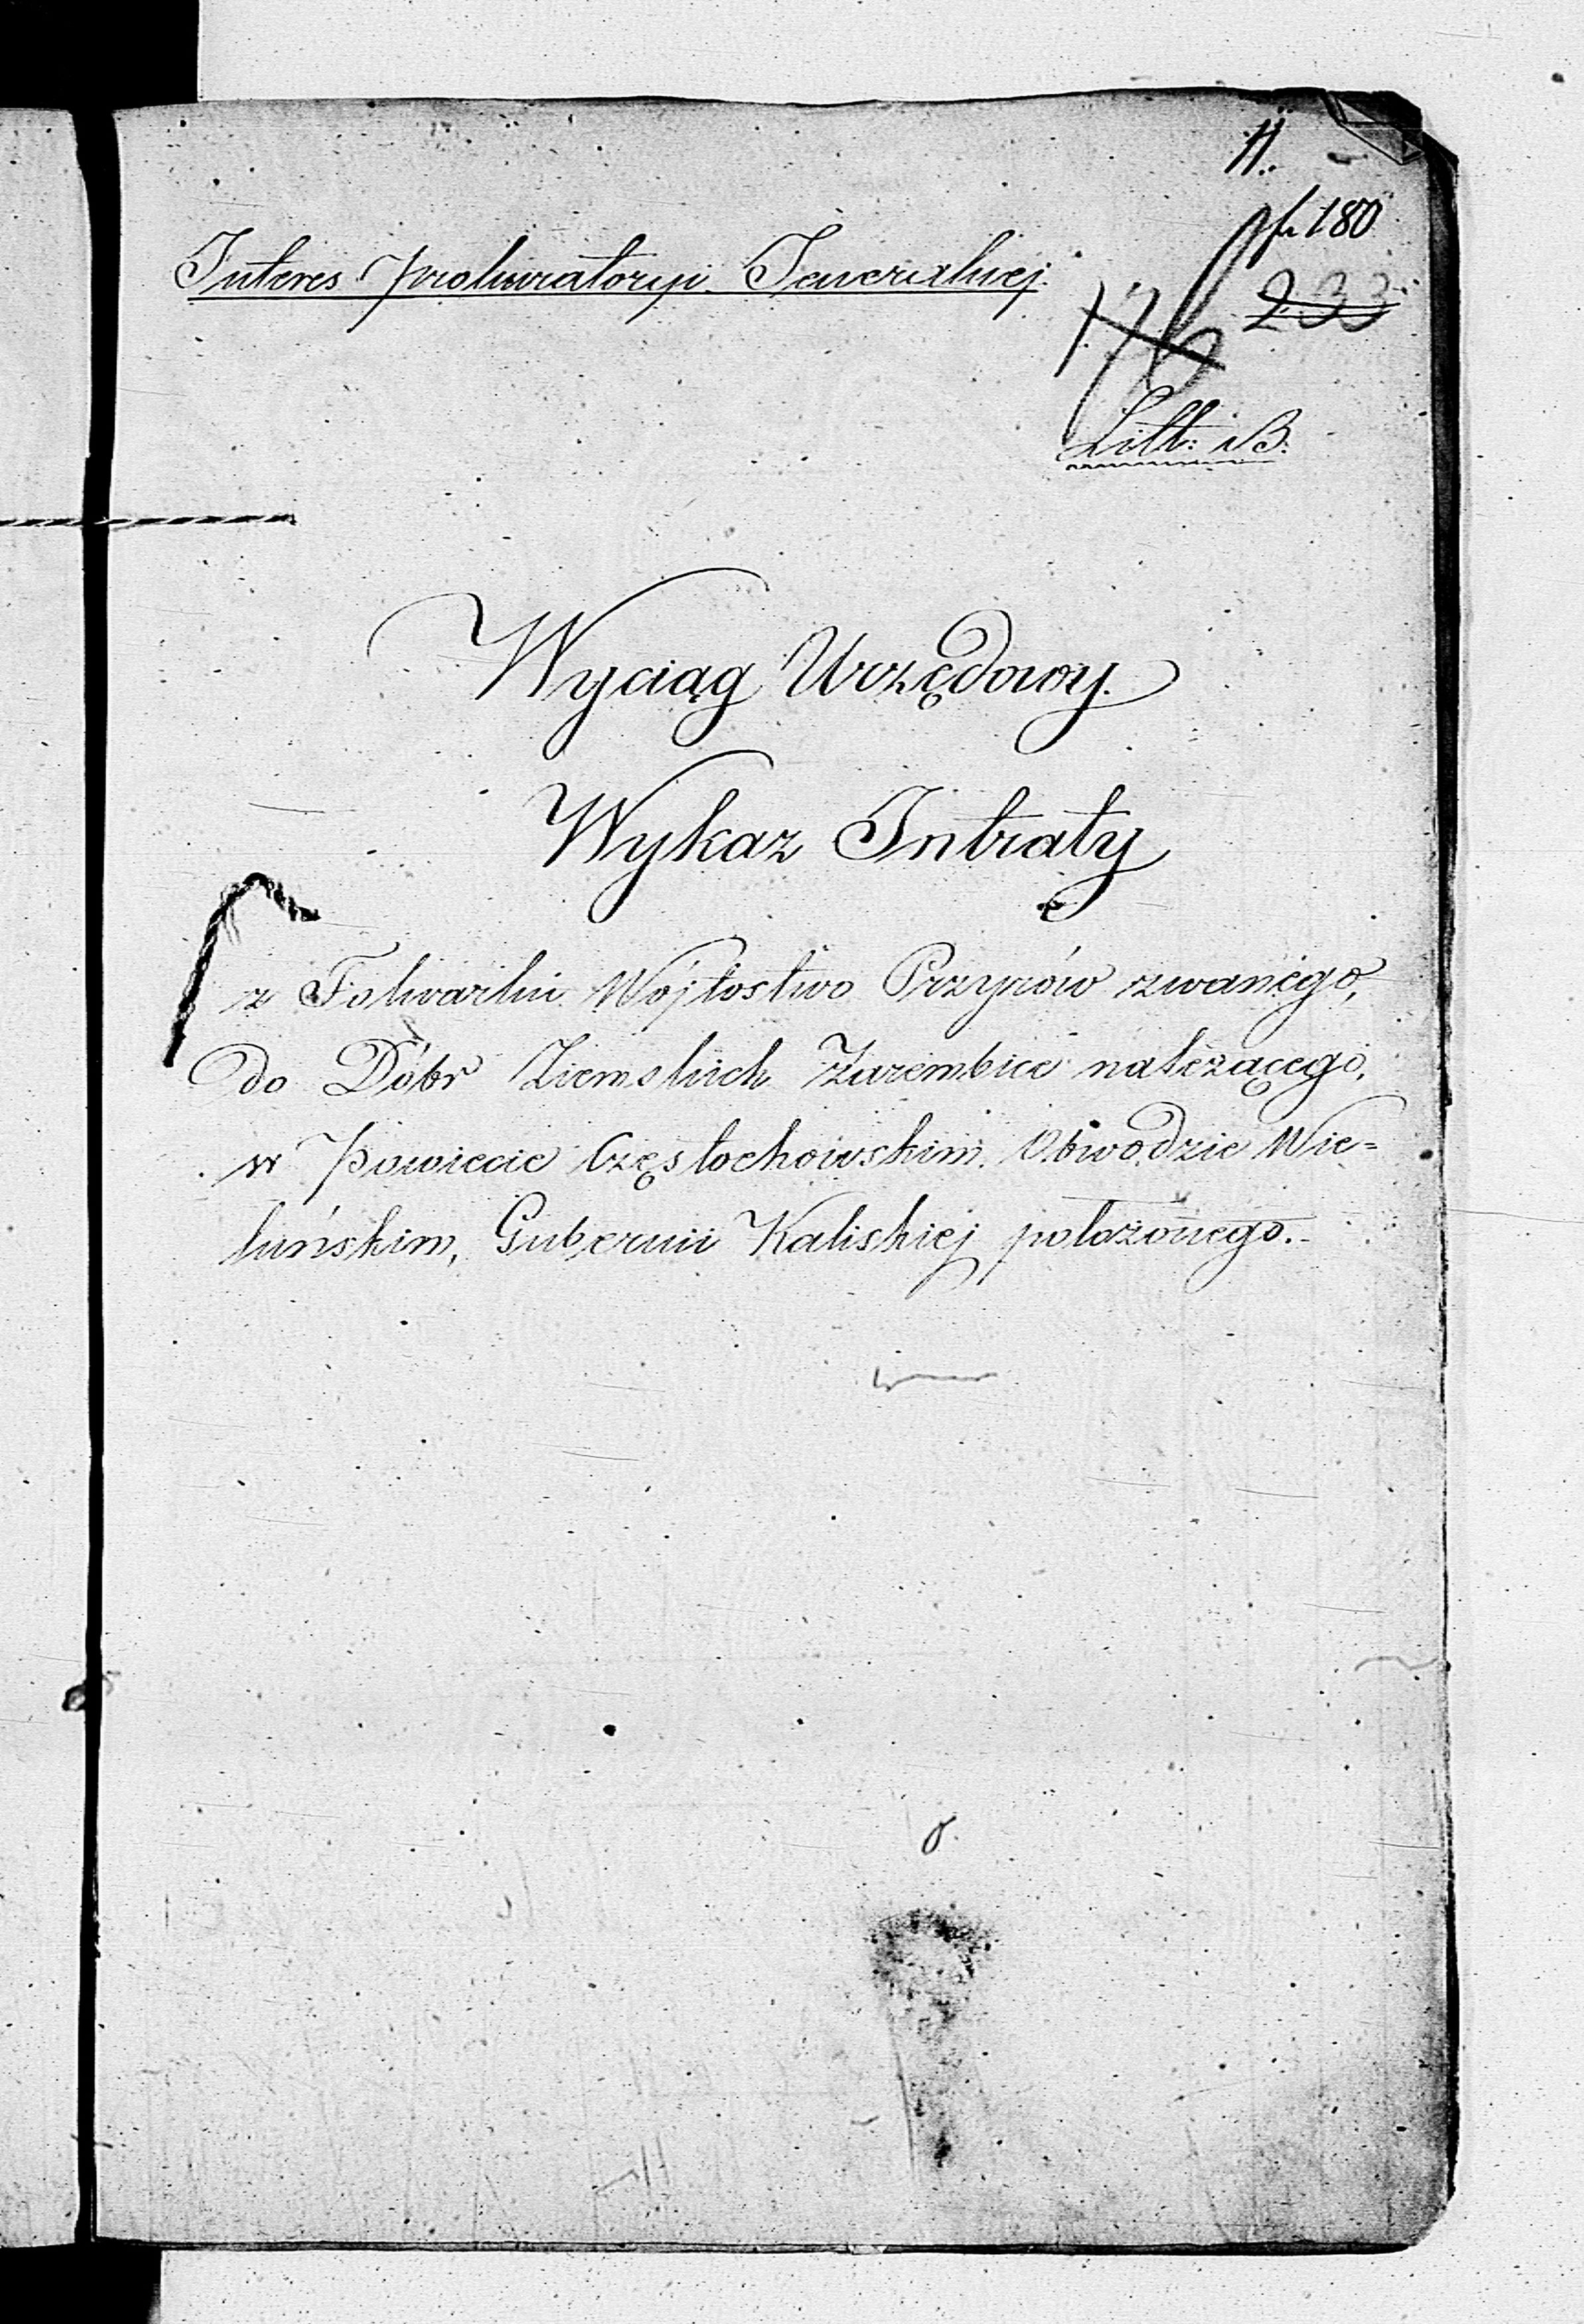 11.
f. 180
Interes Prokuratoryi Jeneralnej.
233
176
Litt: B.
Wyciąg Urzędowy.
Wykaz Intraty
z Folwarku Wójtostwo Przyrów zwanego,
do Dóbr Ziemskich Zarembice należącego,
w Powiecie Częstochowskim, Obwodzie Wie=
luńskim, Gubernii Kaliskiej położonego.-